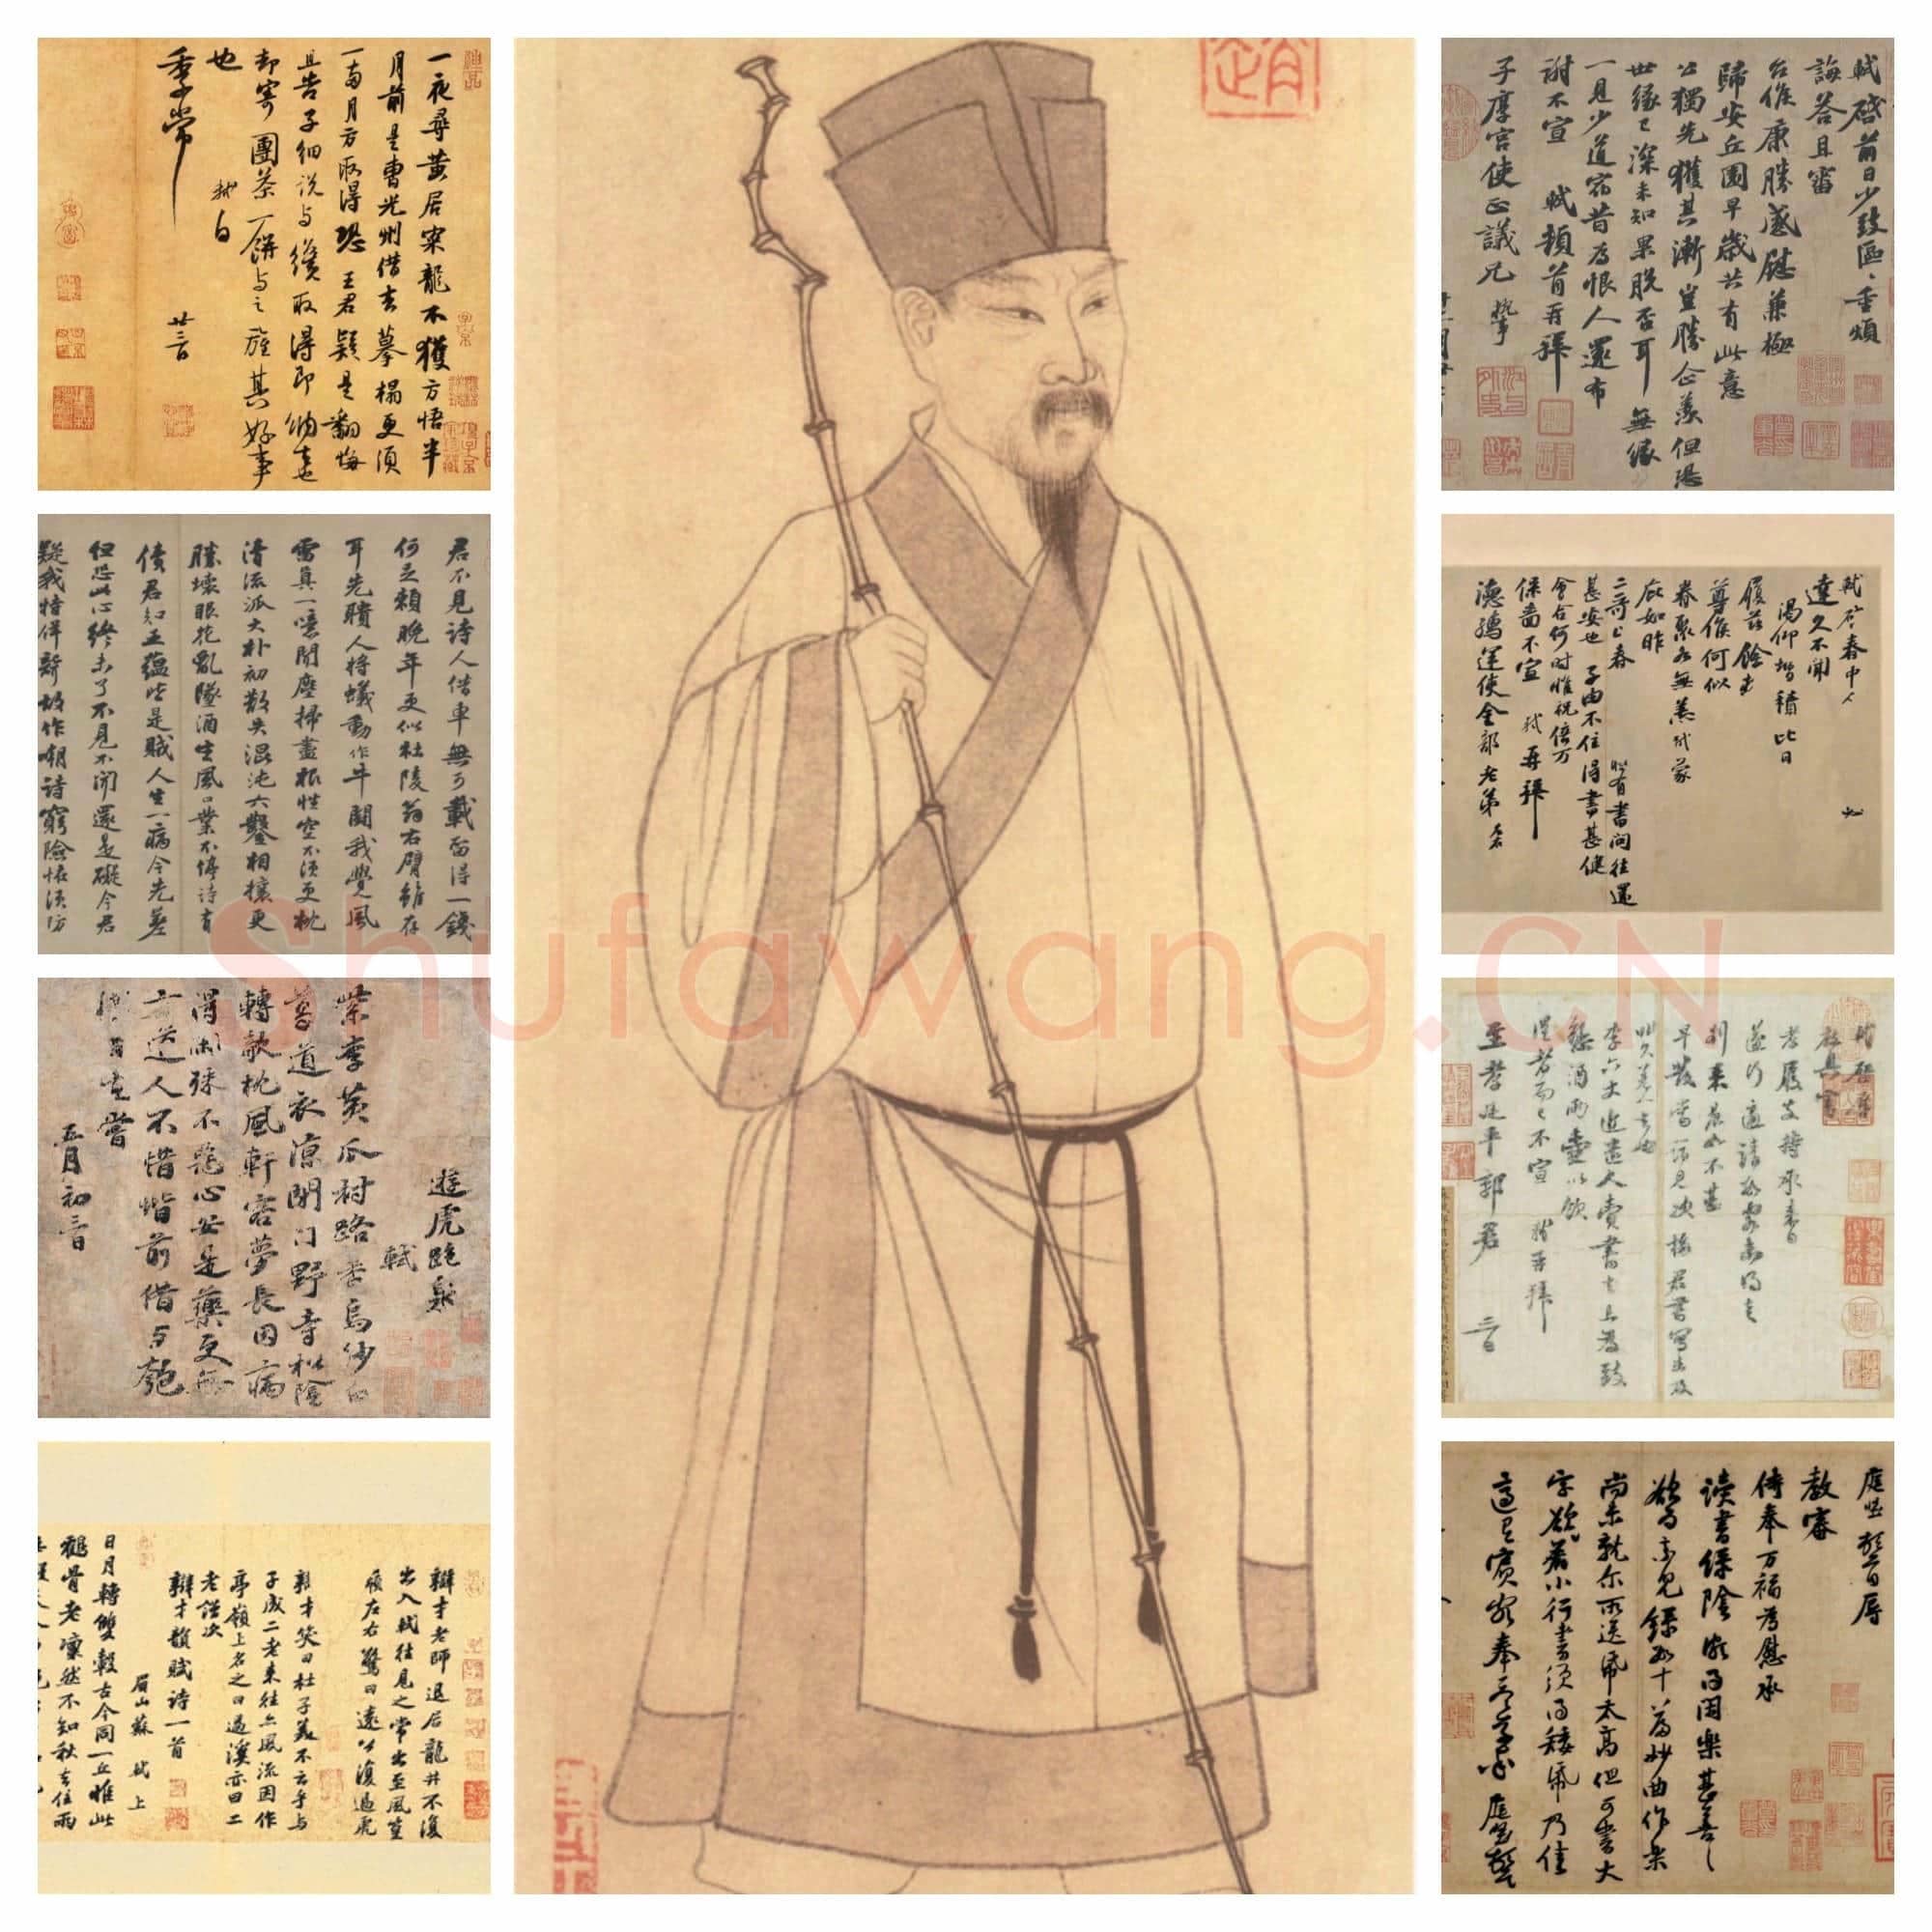 一夜尋黃居寀龍不獲方悟半
月前是曹光州借去摹榻更須
一兩月方取得恐王君疑是翻悔
且告子細說与纔取得即納去也
却寄團茶一餅与之旌其好事
也
軾白
季常
廿三日
君不見詩人借車無可載留得一錢
何足賴晚年更似杜陵翁右臂雖存
耳先聵人將蟻動作牛鬭我覺風
雷真一噫聞塵掃盡根性空不須更枕
清流派大朴初散失混沌六鑿相攘更
勝壞眼花亂墜酒生風口業不停詩有
債君知五蘊皆是賊人生一病今先差
但恐此心終未了不見不聞還是礙今君
疑我特佯聾故作嘲詩窮險怪須防
遊虎跑泉
軾
紫李黃瓜村路香烏紗白
葛道衣涼閉門野寺松陰
轉欹枕風軒客夢長因病
得閑殊不惡心安是藥更無
方道人不惜階前借与匏
樽自在嘗
五月初三日
辯才老師退居龍井不復
出入軾往見之常出至風篁
嶺左右驚曰遠公復過虎
辯才笑曰杜子美不云乎与
子成二老來往亦風流因作
亭嶺上名之曰過溪亦曰二
老謹次
辯才韻賦詩一首
眉山蘇軾上
日月轉雙轂古今同一丘惟此
鶴骨老凜然不知秋去住兩
軾啓前日少致區區重煩
誨答且審
台候康勝感慰兼極
歸安丘園早歲共有此意
公獨先獲其漸豈勝企羨但恐
世緣已深未知果脫否耳無緣
一見少道宿昔為恨人還布
謝不宣軾頓首再拜
子厚宮使正議兄執事
軾啓春中人
還久不聞
渴仰增積比日
履茲餘寒
尊候何似
眷聚各無恙軾蒙
庇如昨
二哥上春
時有書問往還
甚安也子由不住得書甚健
會合何時惟祝倍万
保嗇不宣軾再拜
德孺運使金部老弟
李六丈近遣人賷書去
不宣軾再拜
至孝廷平郭君
三日
庭堅頓首辱
教審
侍奉万福為慰承
讀書綠陰頗得閑樂甚善
欲為素兒錄數十篇妙曲作樂
尚未就爾所送紙太高但可書大
字欲若小行書須得矮紙乃佳
適有賓客奉答草草庭堅頓首
Shufawang.CN